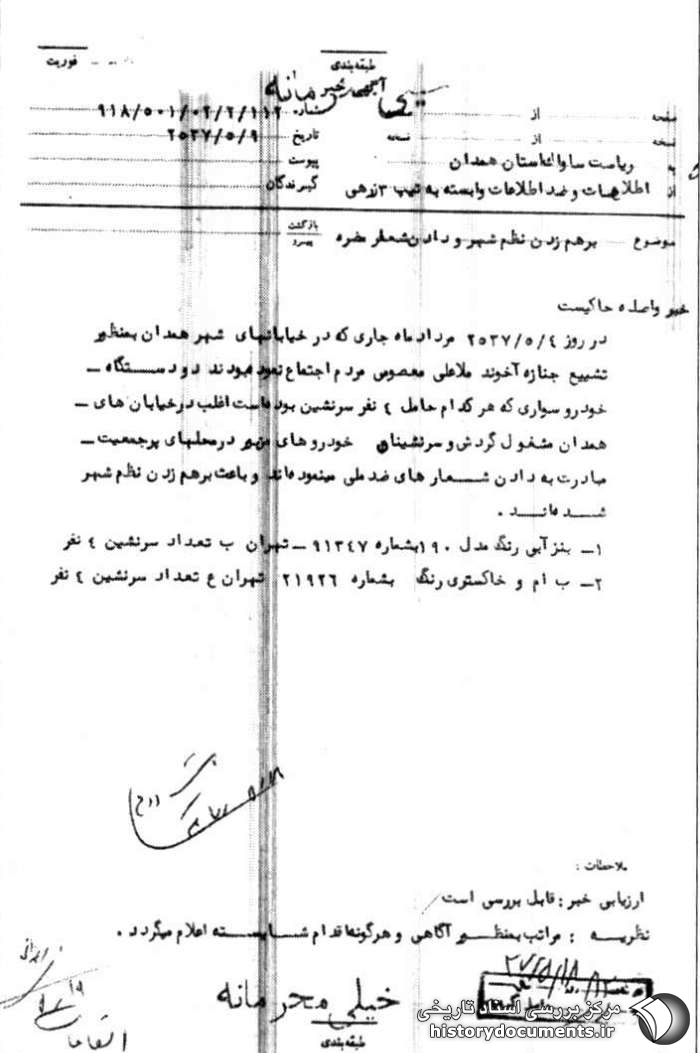 طبقه‌بندی
فوریت
شماره ۹۱۸/۵۰۱/۰۲/۲/۱۱۲
صفحه از
تاریخ ۲۵۳۷/۵/۹
نسخه از نسخه
پیوست
به ریاست ساواک استان همدان
گیرندگان
از اطلاعات و ضد اطلاعات وابسته به تیپ ۳ زرهی
موضوع برهم زدن نظم شهر و دادن شعار مضره
بازگشت
پیرو
خبر واصله حاکیست
در روز ۲۵۳۷/۵/۴ مرداد ماه جاری که در خیابانهای شهر همدان بمنظور
تشییع جنازه آخوند ملاعلی معصومی مردم اجتماع نموده بودند دو دستگاه ـ
خودرو سواری که هر کدام حامل ۴ نفر سرنشین بوده است اغلب در خیابان های ـ
همدان مشغول گردش و سرنشینان خودرو های مزبور در محلهای پرجمعیت ـ
مبادرت به دادن شعار های ضد ملی مینموده‌اند و باعث برهم زدن نظم شهر
شده‌اند .
۱ـ بنز آبی رنگ مدل ۱۹۰ بشماره ۹۱۳۴۷ ـ تهران ب تعداد سرنشین ۴ نفر
۲ـ ب ام و خاکستری رنگ بشماره ۲۱۹۲۶ تهران ع تعداد سرنشین ۴ نفر
ملاحظات :
ارزیابی خبر : قابل بررسی است
نظریه : مراتب بمنظور آگاهی و هرگونه اقدام شایسته اعلام میگردد .
خیلی محرمانه
طبقه‌بندی
مرکز بررسی اسناد تاریخی
historydocuments.ir